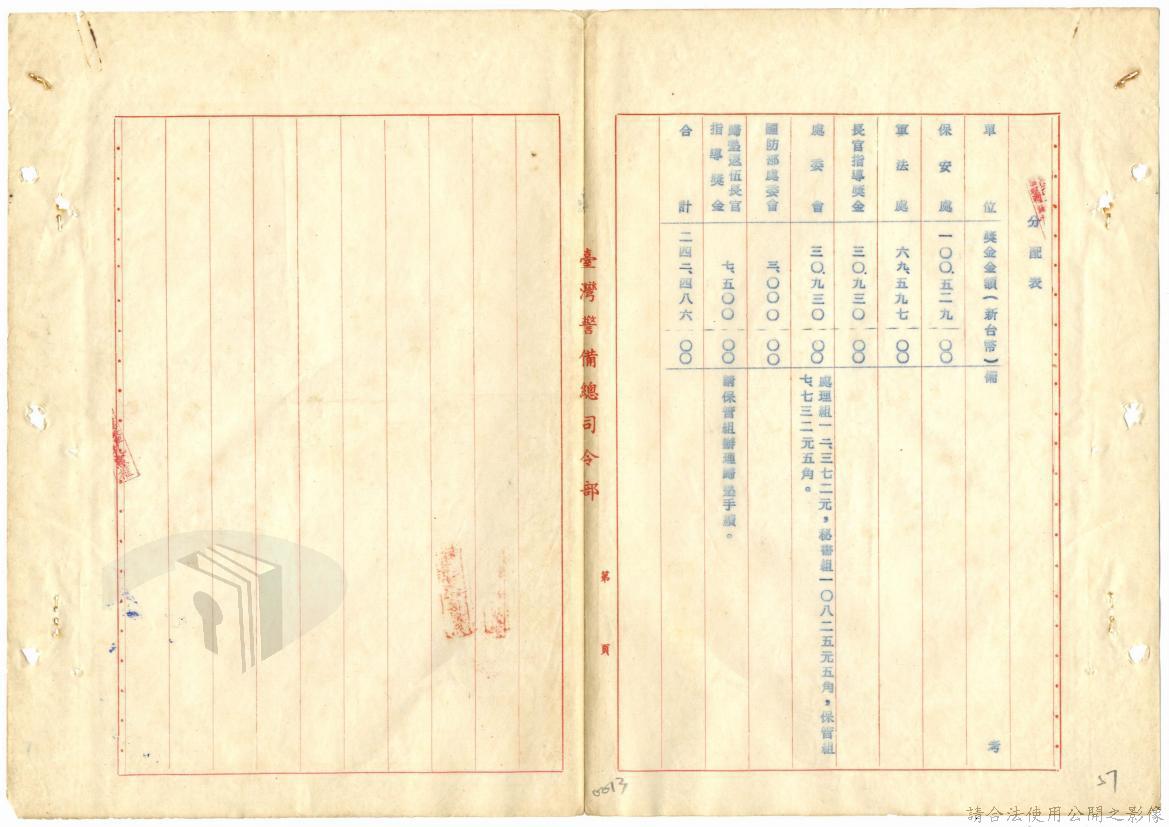 分配表
單位 獎金金額(新台幣) 備考
保安處 一〇〇、五二九 〇〇
軍法處 六九、五九七 〇〇
長官指導獎金 三〇、九三〇 〇〇
處委會 三〇、九三〇 〇〇 處理組一二、三七二元,秘書組一〇八二五元五角,保管組
七、七三二元五角。
國防部處委會 三、〇〇〇 〇〇
歸墊退伍長官
指導獎金 七、五〇〇 〇〇 請保管組辦理歸墊手續。
合計 二四二、四八六 〇〇
臺灣警備總司令部
第 頁
0013
57
請合法使用公開之影像